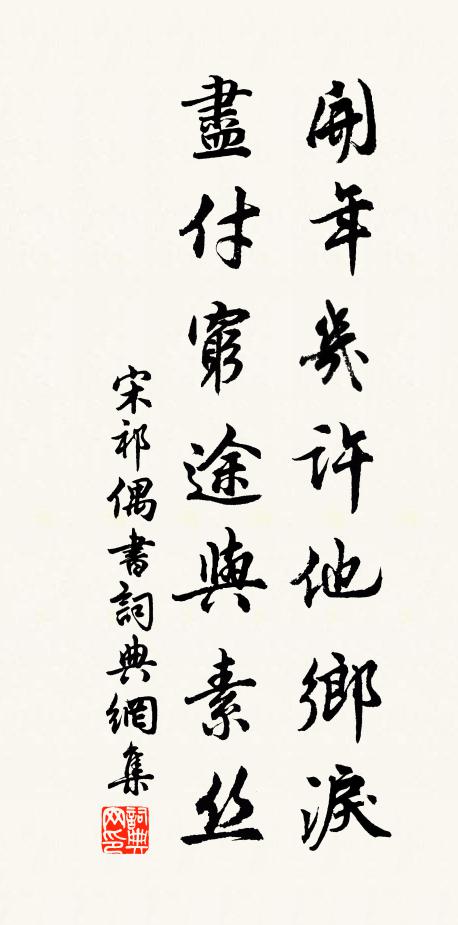 開年幾許他鄉淚
盡付窮途與素丝
宋祁偶書詞典網集
詞典网印